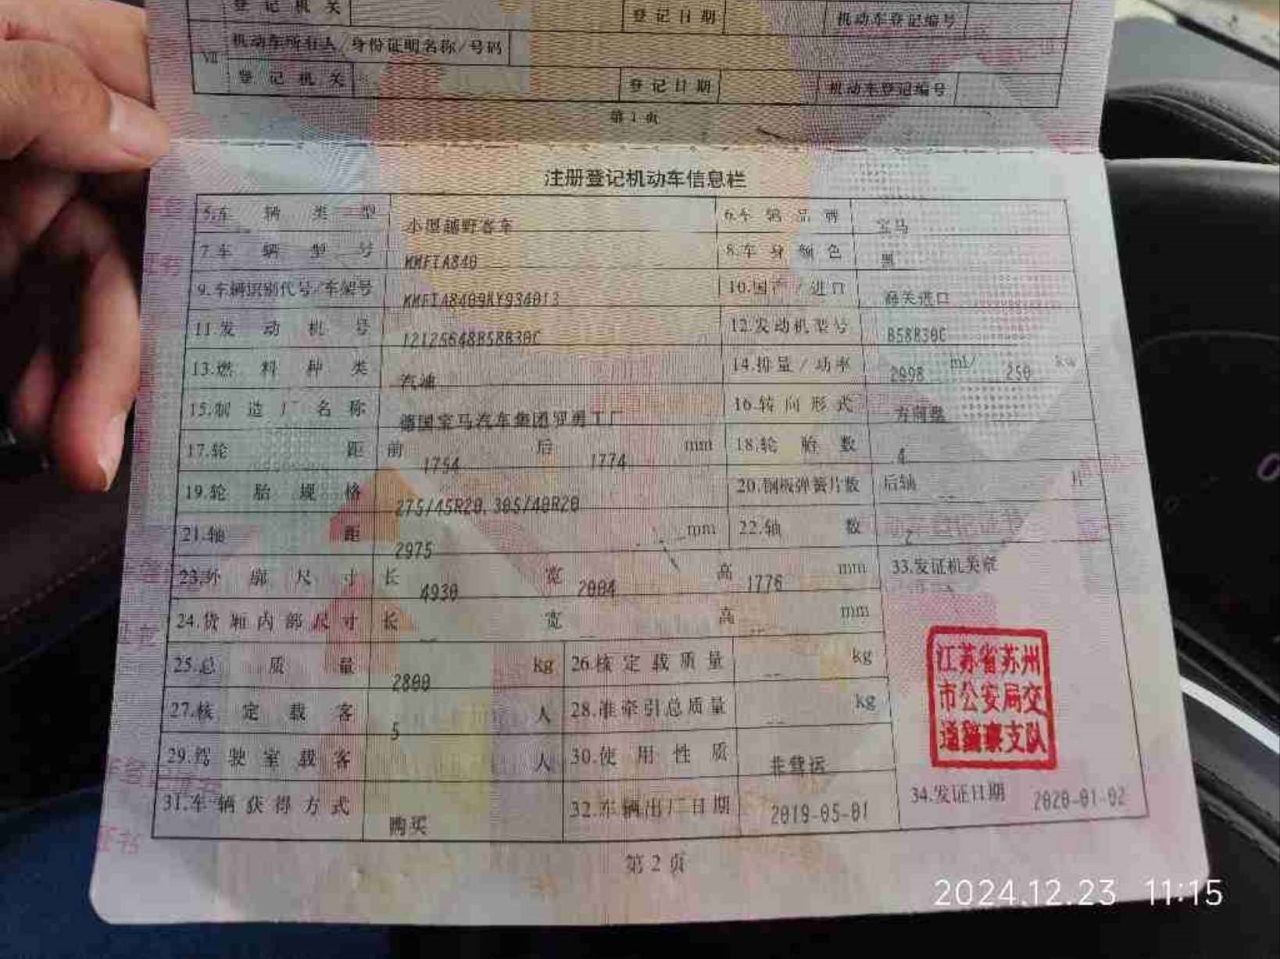 登记机关 登记日期 机动车登记编号
Ⅶ 机动车所有人/身份证明名称/号码
登记机关 登记日期 机动车登记编号
第1页
注册登记机动车信息栏
5.车辆类型 小型越野客车 6.车辆品牌 宝马
7.车辆型号 WMFIA840 8.车身颜色 黑
9.车辆识别代号/车架号 10.国产/进口 海关进口
11.发动机号 12125648B58B30C 12.发动机型号 B58B30C
13.燃料种类 汽油 14.排量/功率 2998 ml/ 250 kw
15.制造厂名称 德国宝马汽车集团罗勇工厂 16.转向形式 方向盘
17.轮距 前 1754 后 1774 mm 18.轮胎数 4
19.轮胎规格 275/45R20,305/40R20 20.钢板弹簧片数 后轴 -- 片
21.轴距 2975 mm 22.轴数 2
23.外廓尺寸 长 4930 宽 2004 高 1776 mm 33.发证机关章
24.货厢内部尺寸 长 -- 宽 -- 高 -- mm
25.总质量 2800 kg 26.核定载质量 -- kg
27.核定载客 5 人 28.准牵引总质量 -- kg
29.驾驶室载客 人 30.使用性质 非营运
31.车辆获得方式 购买 32.车辆出厂日期 2019-05-01
江苏省苏州
市公安局交
通警察支队
34.发证日期 2020-01-02
第2页
2024.12.23 11:15